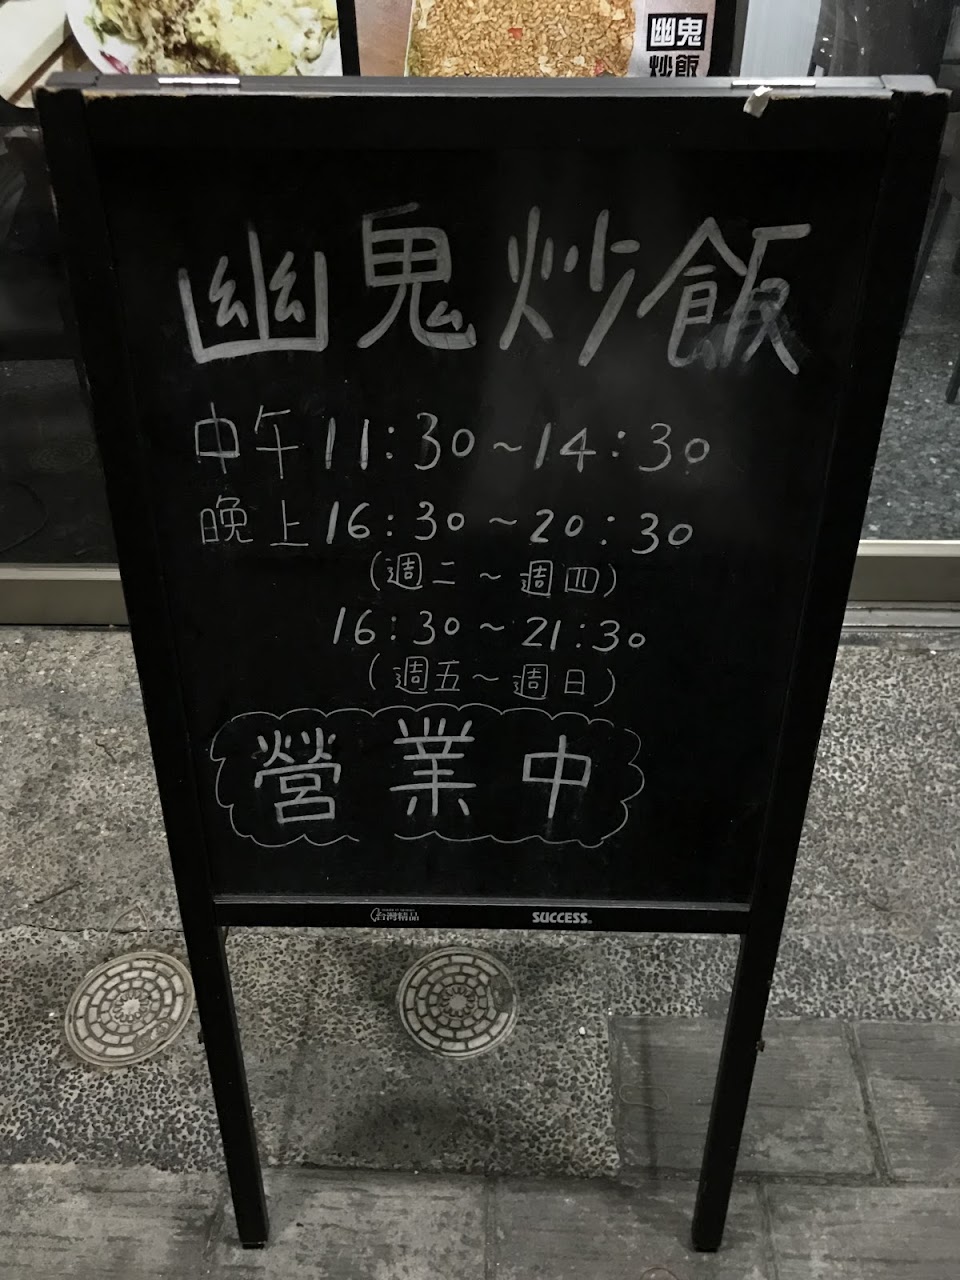 幽鬼
炒飯
幽鬼炒飯
中午11:30~14:30
晚上16:30~20:30
(週二~週四)
16:30~21:30
(週五~週日)
營業中
台灣精品 SUCCESS